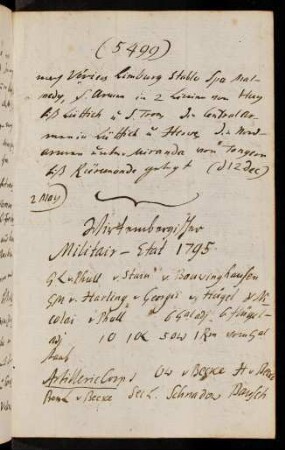 (5499)
Verviers Limburg Stablo Spa Mal-
medy, S. Armee in 2 Linien von Huy
biß Lüttich u S. Tron. Die Central Ar-
mee in Lüttich u Herve die Nord-
armee unter Miranda von Tongern
biß Rüremonde gelegt (d 12 Dec)
2 May)
Wirtembergischer
Militair-Etat 1795
GL v Phull v Stain v Bouwinghausen
GM v Harling v Georgii v Hügel v Ni-
colai v Phull 6 Galadj 6 Flügel-
adj 10 10L 50W 1Rm vom Gal
staab
Artillerie Corps Ow v Beeke H v
v Beeke Schnadow Bausch